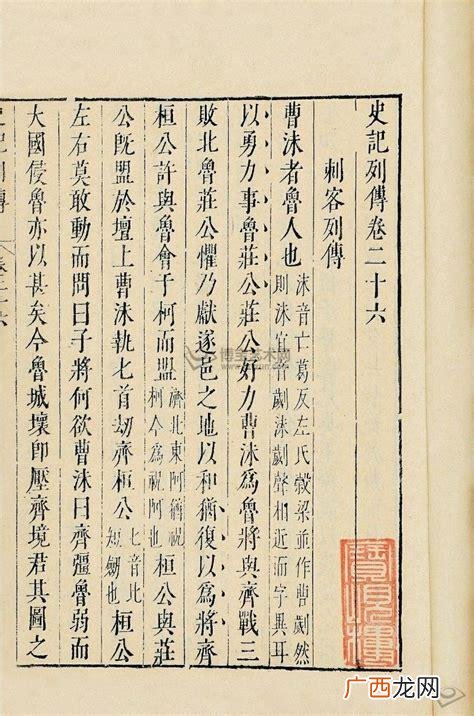 史記列傳卷二十六
刺客列傳
曹沫者魯人也
沫音亡葛反左氏穀梁並作曹劌然
則沫宜音劌沫劌聲相近而字異耳
以勇力事魯莊公莊公好力曹沫爲魯將與齊戰三
敗北魯莊公懼乃獻遂邑之地以和猶復以爲將齊
桓公許與魯會于柯而盟
濟北東阿猶祝
柯今爲祝阿也
桓公與莊
公既盟於壇上曹沫執匕首劫齊桓公
匕音比
短劒也
桓公
左右莫敢動而問曰子將何欲曹沫曰齊彊魯弱而
大國侵魯亦以甚矣今魯城壞即壓齊境君其圖之
博宝艺术网
广西龙网